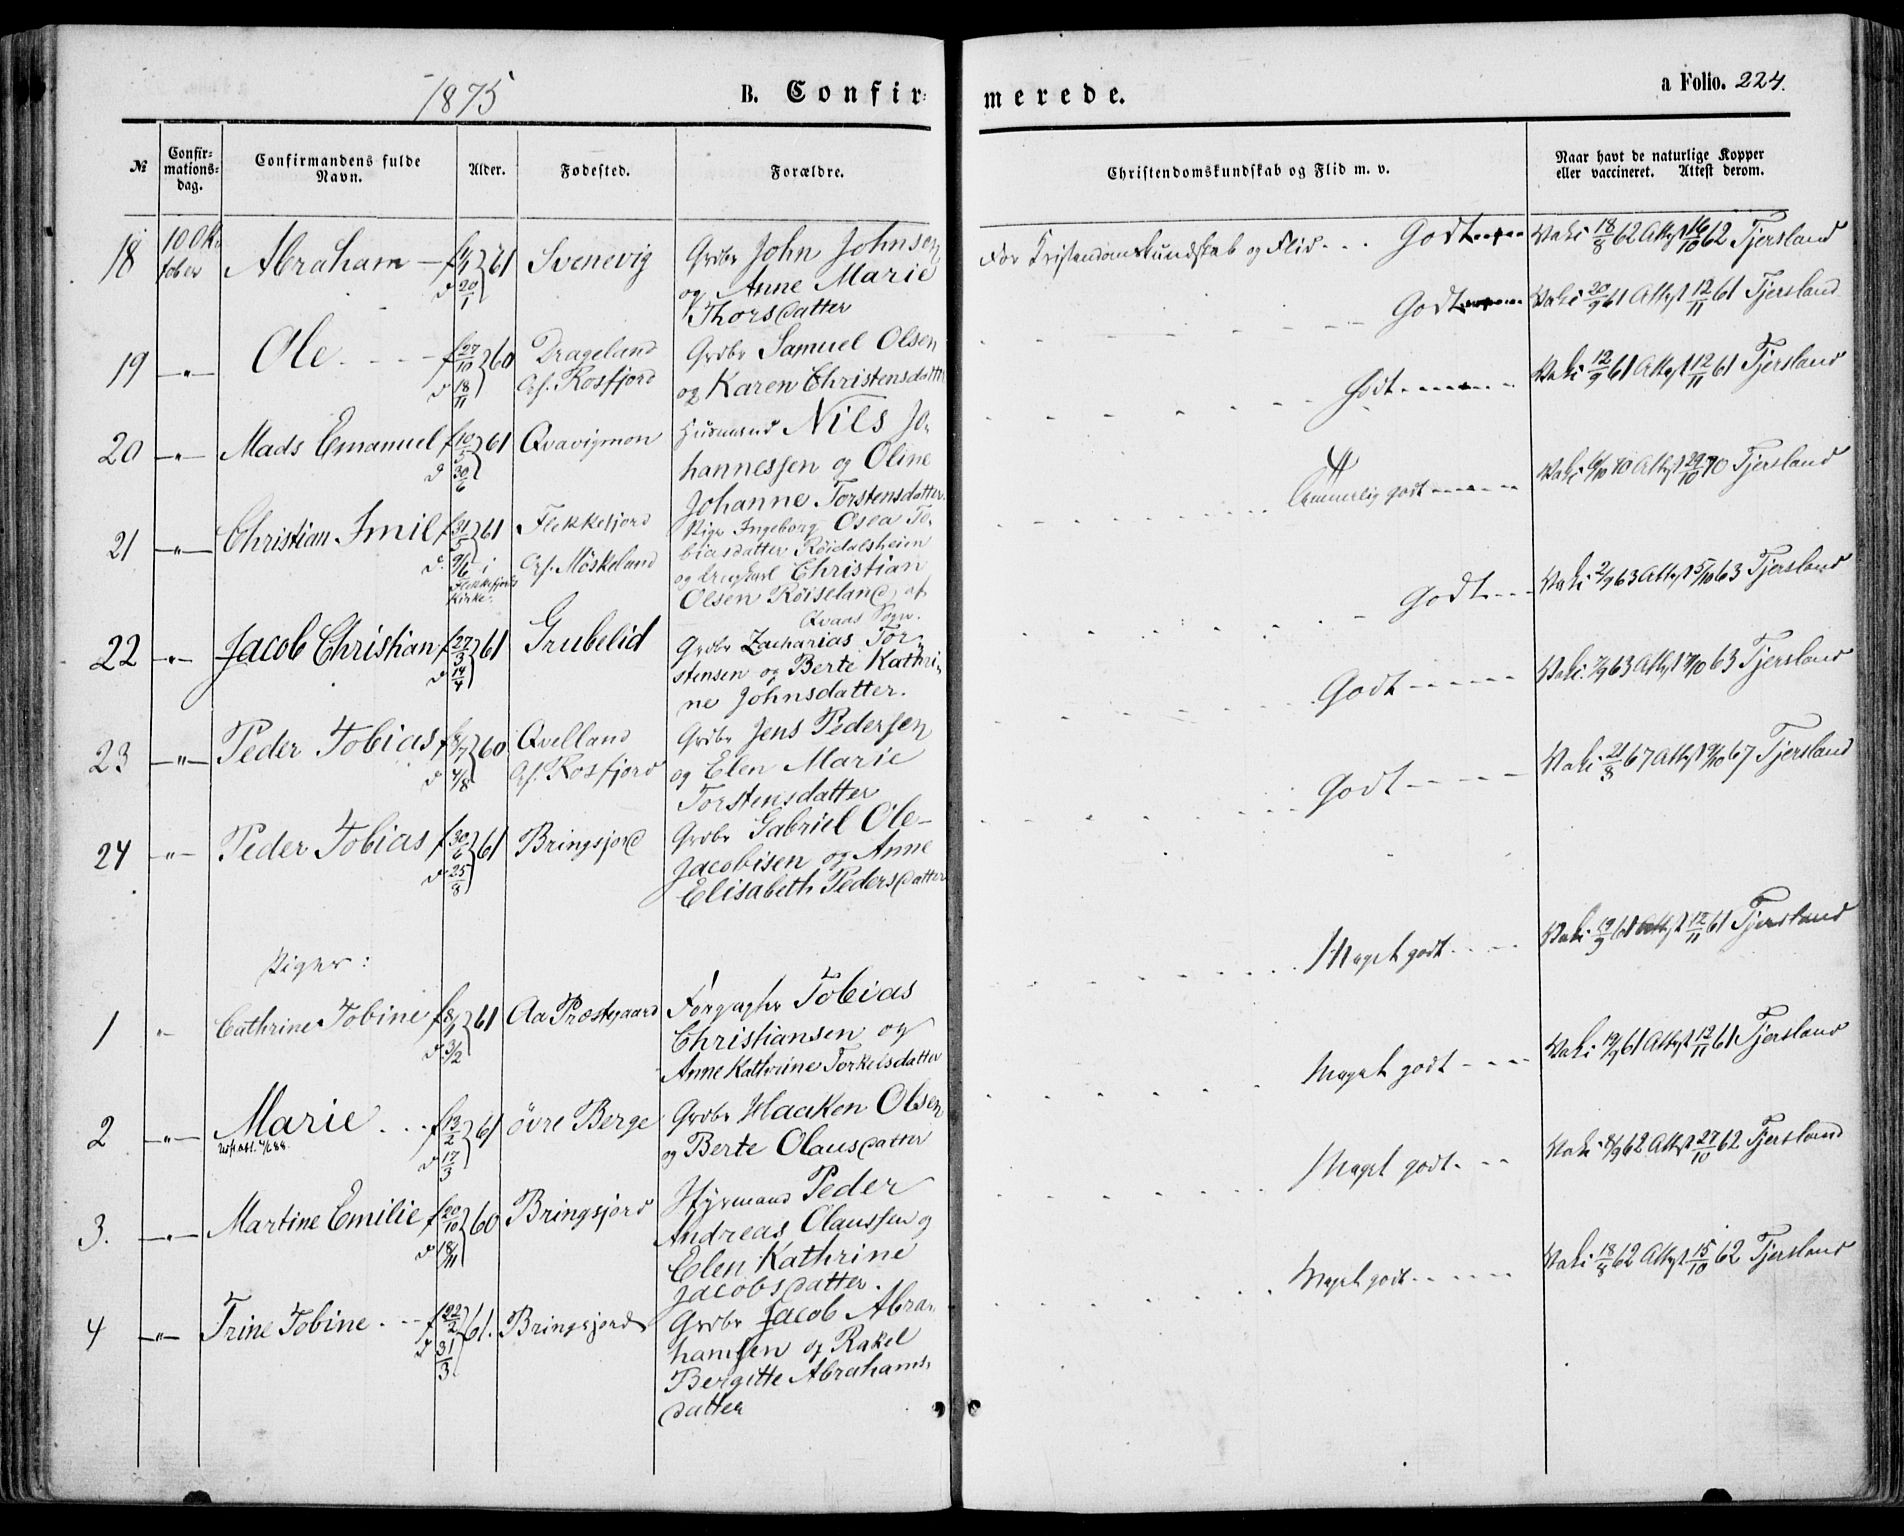 1875 B. Confirmerede. a Folio. 224.
№ Confirmationsdag. Confirmandens fulde Navn. Alder. Fødested. Forældre. Christendomskundskab og Flid m. v. Naar havt de naturlige Kopper eller vaccineret. Attest derom.
18 10 Oktober Abraham f 6/1 d 20/1 61 Svenevig Grdbr John Johnsen
og Anne Marie
Thorsdatter
For Kristendomskundskab og Flid Godt Vaki 18/8 62 Attest 16/10 62 Tjersland
19 " Ole f 27/10 d 18/11 60 Drageland Grdbr Samuel Olsen
Oph. Rosfjord og Karen Christensdatter
Godt Vaki 20/9 61 Attest 12/11 61 Tjersland
20 " Mads Emanuel f 10/5 d 30/6 61 Qvavigmon Husmand Nils Jo-
hannessen og Oline
Johanne Torstensdatter
Godt Vaki 12/9 61 Attest 12/11 61 Tjersland
21 " Christian Imil f 31/5 61 Flekkefjord Pige Ingeborg Osea To-
d. 9/6 i Oph. Møskeland biasdatter Røidalsheien
Flekkefjords og Ungkarl Christian
Kirke. Olsen Røiseland af
Qvaas Sogn.
Temmerlig godt Attest 29/10 70 Tjersland
22 " Jacob Christian f 27/3 d 14/4 61 Grubelid Grdbr Zacharias Tor-
stensen og Berte Kathri-
ne Johnsdatter.
Godt Vaki 2/9 63 Attest 5/10 63 Tjersland
23 " Peder Tobias 60 Qvelland Grdbr Jens Pedersen
Oph. Rosfjord og Elen Marie
Torstensdatter
Godt Tjersland
24 " Peder Tobias f 30/6 d 25/8 61 Bringsjord Grdbr Gabriel Ole-
Jacobisen og Anne
Elisabeth Pedersdatter
Godt Vaki 21/8 67 Attest 9/10 67 Tjersland
Piger:
1 " Cathrine Tobine f 8/1 d 3/2 61 Aa Præstgaard Forpagter Tobias
Christiansen og
Anne Kathrine Torkelsdatter
Meget godt Vaki 19/9 61 Attest 12/11 61 Tjersland
2 " Marie f 13/2 d 17/3 61 øvre Berge Grdbr Haaken Olsen
og Berte Olausdatter
Meget godt Vaki 19/9 61 Attest 12/11 61 Tjersland
3. " Martine Emilie f 20/10 d 18/11 60 Bringsjord Styrmand Peder
Andreas Olaussen og
Elen Kathrine
Jacobsdatter.
Meget godt Vaki 8/9 62 Attest 27/10 62 Tjersland
4 " Trine Tobine f 22/2 d 31/3 61. Bringsjord Grdbr Jacob Abra-
hamsen og Rakel
Bergitte Abrahams-
datter
Meget godt Vaki 18/8 62 Attest 15/10 62 Tjersland